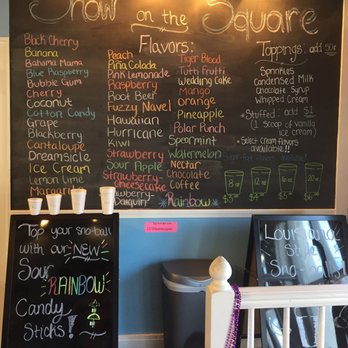 Snow on the Square
Flavors:
Black Cherry
Banana
Bahama Mama
Blue Raspberry
Bubble Gum
Cherry
Coconut
Cotton Candy
Grape
Blackberry
Cantaloupe
Dreamsicle
Ice Cream
Lemon Lime
Margarita
Peach
Piña Colada
Pink Lemonade
Raspberry
Root Beer
Fuzzy Navel
Hawaiian
Hurricane
Kiwi
Strawberry
Sour Apple
Strawberry-
Cheesecake
Strawberry-
Daiquiri
Tiger Blood
Tutti Frutti
Wedding Cake
Mango
Orange
Pineapple
Polar Punch
Spearmint
Watermelon
Nectar
Chocolate
Coffee
*Rainbow*
Toppings: add 50¢
Sprinkles
Condensed Milk
Chocolate Syrup
Whipped Cream
*Stuffed: add $1
(1 scoop of vanilla
ice cream)
*Select cream flavors
available!!
8oz
12oz
16oz
20oz
Top your sno-ball
with our NEW
Sour
RAINBOW
Candy
Sticks!
Louisiana
Style
Sno-